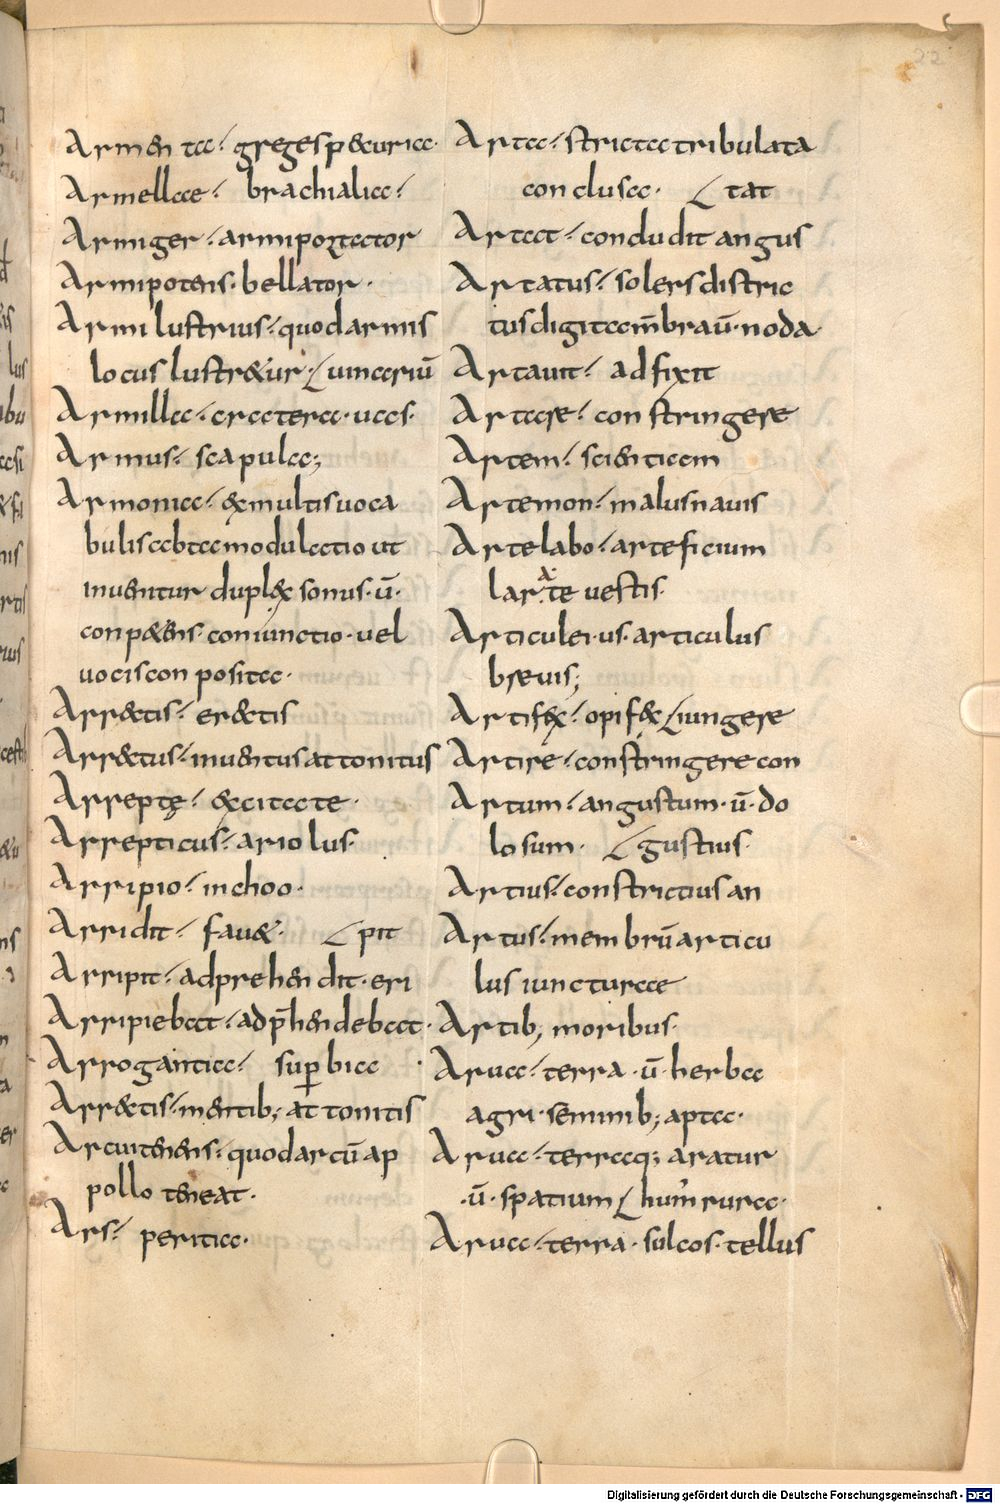 22
Armenta. gregespecuriae.
Armellae. brachialia.
Armiger. armiportector
Armipotens. bellator.
Armi lustrius. quodarmis
locus lustretur.
Armillae. craeterea. uaes.
Armus. scapulae;
Armoniae. exmultis uoca
bulis abta modulatio ut
inuenitur duplex sonus. ū.
conpetens. coniunctio. uel
uocis con posita.
Arretis. eretis
Arretus. inuentus attonitus
Arreptę. excitate.
Arrepticus. ariolus.
Arripio. inchoo.
Arridit. fauet. pit
Arripit. adprehendit. eri
Arripiebat. adp̄hendebat.
Arrogantia. superbia
Arretis. mentib; attonitis
Arcuitenens. quodarcū ap
pollo teneat.
Ars. peritia.
Arta. stricta tribulata
conclusa. tat
Artat. concludit angus
Artatus. solers distric
tus digita m̄bra ū. noda.
Artauit. adfixit
Artare. constringere
Artem. scientiam
Artemon. malus nauis
Artelabo. arteficium
lar.te uestis.
Articulei. us. articulus
breuis;
Artifex. opifex iungere
Artire. constringere con
Artum. angustum. ū. do
losum. gustius.
Artius. constrictius an
Artus. membrū articu
lus iuncturae
Artib; moribus.
Arua. terra. ū. herba
agri. seminib; apta.
Arua. terraq; aratur
.ū. spatium rura.
Arua. terra. sulcos. tellus
Digitalisierung gefördert durch die Deutsche Forschungsgemeinschaft - DFG